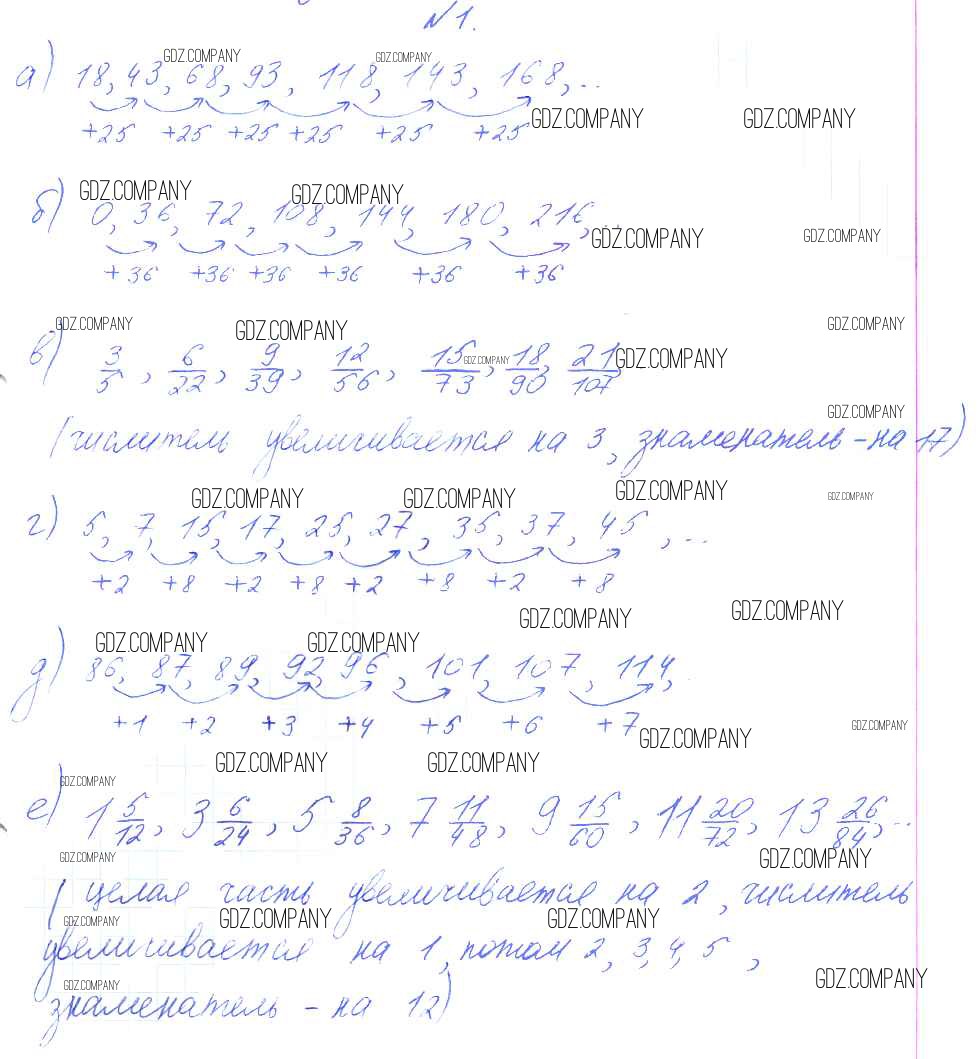 №1.
GDZ.COMPANY GDZ.COMPANY
а) 18, 43, 68, 93, 118, 143, 168, ..
+25 +25 +25 +25 +25 +25
GDZ.COMPANY GDZ.COMPANY
GDZ.COMPANY GDZ.COMPANY
б) 0, 36, 72, 108, 144, 180, 216, ..
GDZ.COMPANY GDZ.COMPANY
+36 +36 +36 +36 +36 +36
GDZ.COMPANY GDZ.COMPANY GDZ.COMPANY
в) 3/5, 6/22, 9/39, 12/56, 15/73, 18/90, 21/107
GDZ.COMPANY GDZ.COMPANY
GDZ.COMPANY
(числитель увеличивается на 3, знаменатель - на 17)
GDZ.COMPANY GDZ.COMPANY GDZ.COMPANY GDZ.COMPANY
г) 5, 7, 15, 17, 25, 27, 35, 37, 45, ...
+2 +8 +2 +8 +2 +8 +2 +8
GDZ.COMPANY GDZ.COMPANY
GDZ.COMPANY GDZ.COMPANY
д) 86, 87, 89, 92, 96, 101, 107, 114,
+1 +2 +3 +4 +5 +6 +7
GDZ.COMPANY GDZ.COMPANY
GDZ.COMPANY GDZ.COMPANY
GDZ.COMPANY
е) 1 5/12, 3 6/24, 5 8/36, 7 11/48, 9 15/60, 11 20/72, 13 26/84, ..
GDZ.COMPANY GDZ.COMPANY
(целая часть увеличивается на 2, числитель
GDZ.COMPANY GDZ.COMPANY GDZ.COMPANY
увеличивается на 1, потом 2, 3, 4, 5,
GDZ.COMPANY GDZ.COMPANY
знаменатель - на 12)